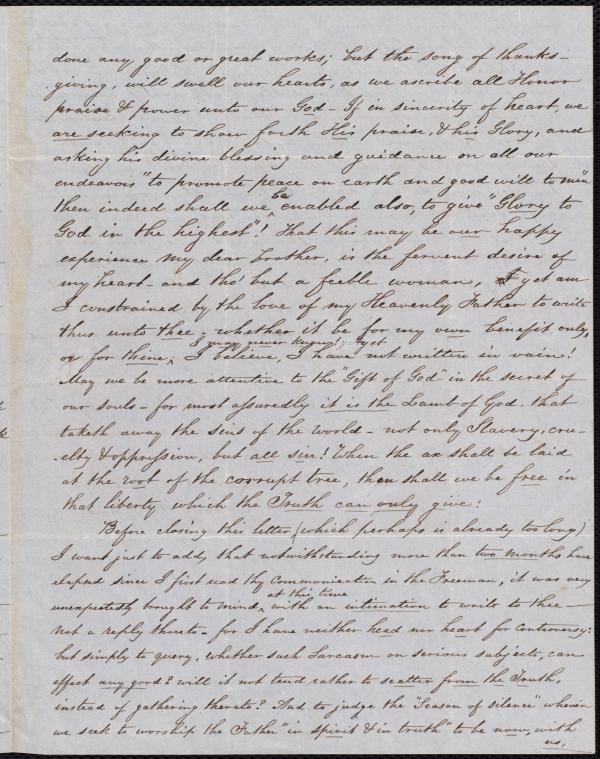 done any good or great works; but the song of thanks-
giving, will swell our hearts, as we ascribe all Honor
praise & power unto our God - If in sincerity of heart, we
are seeking to show forth His praise, & his Glory, and
asking his divine blessing and guidance on all our
endeavors "to promote peace on earth and good will to men"
then indeed shall we be enabled also, to give "Glory to
God in the highest"! That this may be our happy
experience my dear brother, is the fervent desire of
my heart - and tho' but a feeble woman, yet am
I constrained by the love of my Heavenly Father to write
thus unto thee - whether it be for my own benefit only,
or for thine, I may never know! yet
I believe, I have not written in vain!
May we be more attentive to the "Gift of God" in the secret of
our souls - for most assuredly it is the Lamb of God that
taketh away the sins of the world - not only Slavery, cru-
elty & oppression, but all sin! When the ax shall be laid
at the root of the corrupt tree, then shall we be free in
that liberty which the Truth can only give:
Before closing this letter (which perhaps is already too long)
I want just to add, that notwithstanding more than two months have
elapsed since I first read thy communication in the Freeman, it was very
unexpectedly brought to mind at this time with an intimation to write to thee -
not a reply thereto - for I have neither head nor heart for controversy:
but simply to query, whether such Sarcasm on serious subjects, can
effect any good? will it not tend rather to scatter from the Truth,
instead of gathering thereto? And to judge the "Season of silence" wherein
we seek to worship the Father "in spirit & in truth" to be now, with
us,